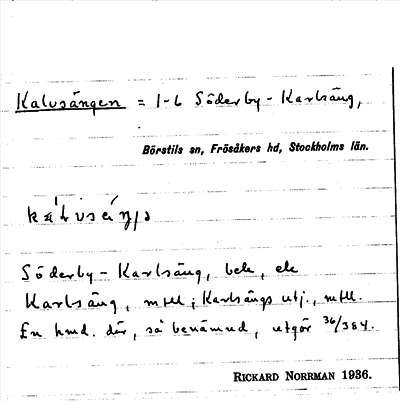 Kalvsängen = 1-6 Söderby-Karlsäng,
Börstils sn, Frösåkers hd, Stockholms län.
Söderby-Karlsäng, bek., ek
Karlsäng, mtll; Karlsängs utj., mtll.
En hmd. där, så benämnd, utgör 36/384.
RICKARD NORRMAN 1936.